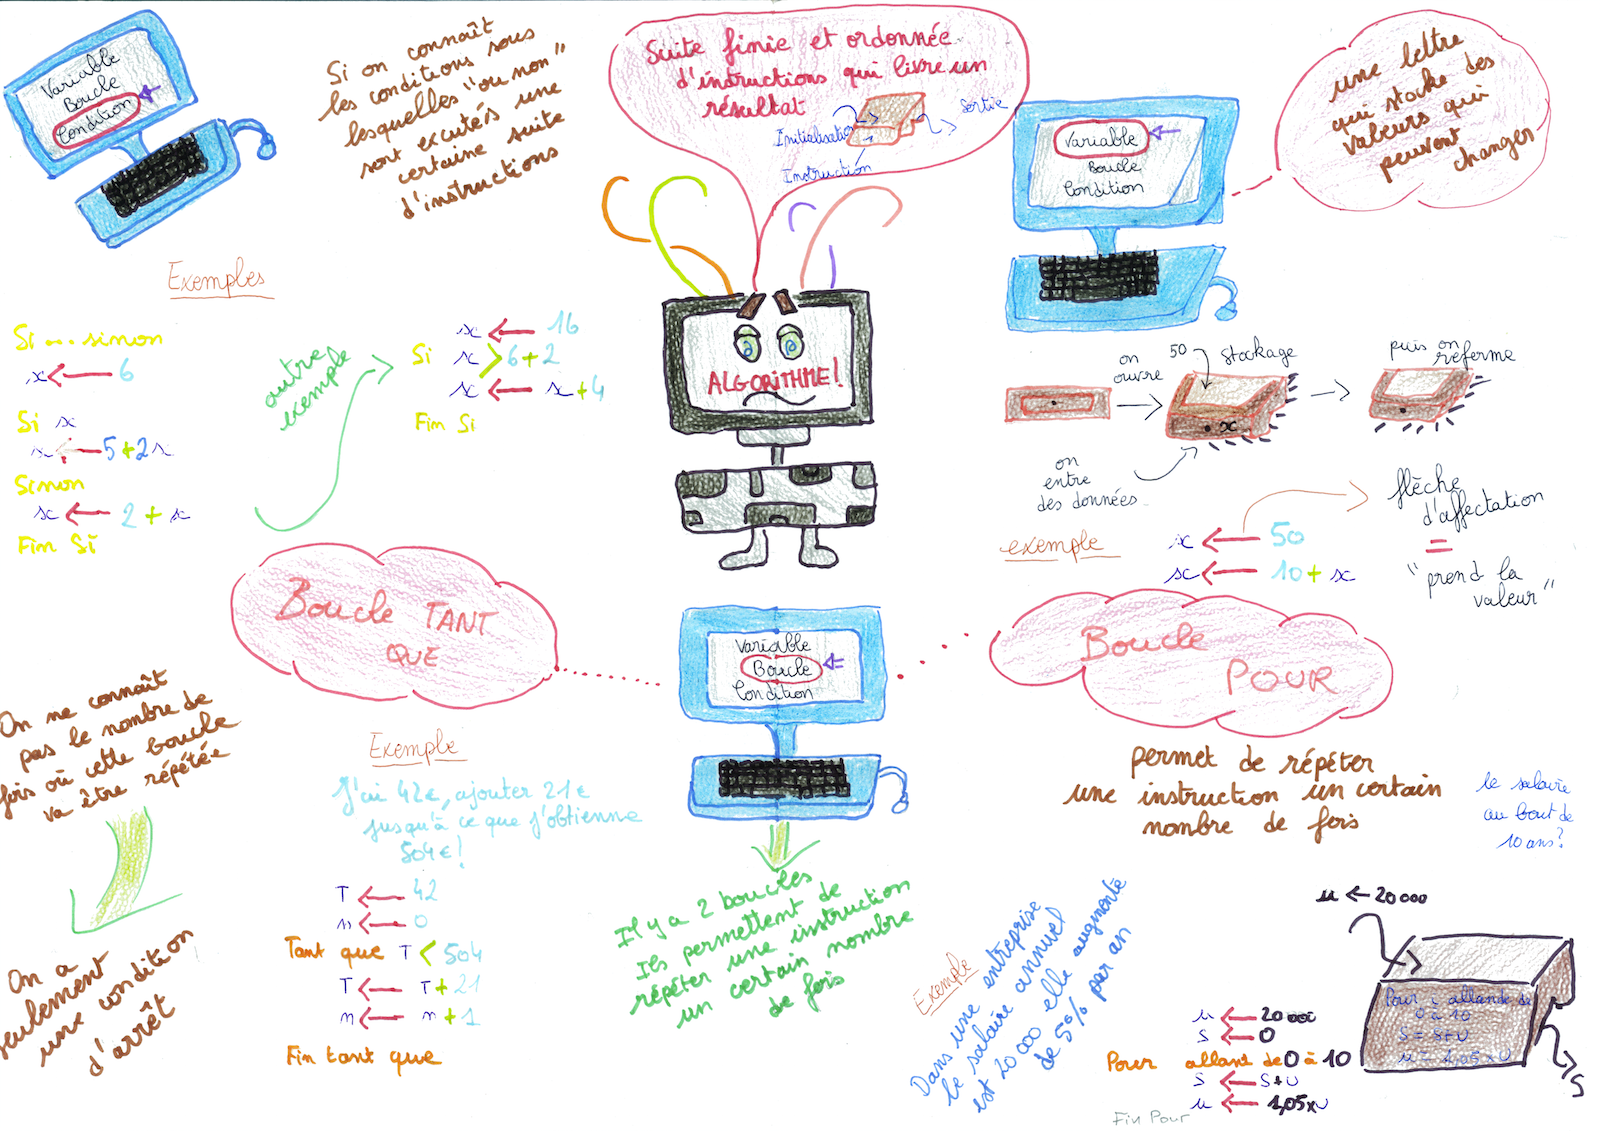 Variable
Boucle
Condition
Si on connaît
les conditions sous
lesquelles "ou non"
sont excutés une
certaine suite
d'instructions
Suite finie et ordonnée
d'instructions qui livre un
résultat
Initialisation
Instruction
Sortie
Variable
Boucle
Condition
une lettre
qui stocke des
valeurs qui
peuvent
changer
Exemples
Si ... sinon
x ← 6
Si x
x ← 5+2x
Sinon
x ← 2+x
Fin Si
autre
exemple
x ← 16
Si x > 6+2
x ← x+4
Fin Si
ALGORITHME!
on
ouvre
50
stockage
puis on
referme
x
on
entre
des données
exemple
x ← 50
x ← 10+x
flèche
d'affectation
=
"prend la
valeur"
Boucle TANT
QUE
Variable
Boucle
Condition
Boucle
POUR
On ne connaît
pas le nombre de
fois où cette boucle
va être répétée
On a
seulement
une condition
d'arrêt
Exemple
J'ai 42€, ajouter 21€
jusqu'à ce que j'obtienne
504€!
T ← 42
n ← 0
Tant que T < 504
T ← T+21
n ← n+1
Fin tant que
Il y a 2 boucles
Ils permettent de
répéter une instruction
un certain nombre
de fois
permet de répéter
une instruction un certain
nombre de fois
le salaire
au bout de
10 ans?
Exemple
Dans une entreprise
le salaire annuel
est 20 000 elle augmente
de 5% par an
u ← 20 000
S ← 0
Pour allant de 0 à 10
S ← S+U
u ← 1,05xU
Fin Pour
u ← 20 000
Pour i allant de
0 à 10
S = S+U
u = 1,05 x U
S